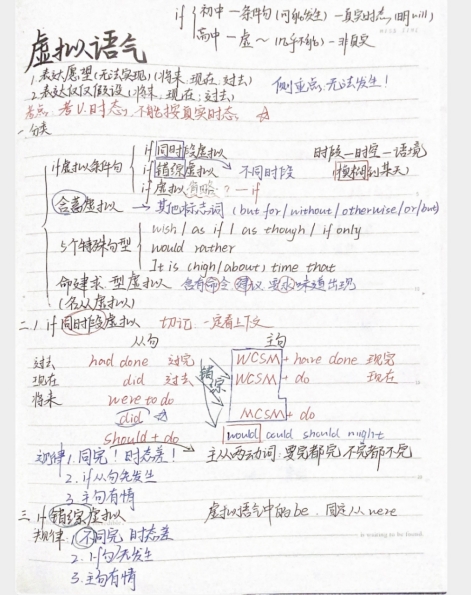 if { 初中—条件句(可能发生)—真实时态, 明will
高中—虚~(几乎不能)—非真实
虚拟语气
1.表达愿望(无法实现)(将来.现在.过去)
2.表达仅仅假设(将来.现在;过去)
侧重点:无法发生!
考点:考V.时态,不能按真实时态. ☆
一.分类
if虚拟条件句
if同时段虚拟
if错综虚拟 → 不同时段
if虚拟省略 ? — if
时段—时空—语境
含蓄虚拟 → 其他标志词 (but for/without/otherwise/or/but)
5个特殊句型
wish / as if / as though / if only
would rather
It is (high/about) time that
命建求型虚拟 含有命令 建议 要求味道出现
(名从虚拟)
二.if同时段虚拟 切记 一定看上下文
从句 主句
过去 had done 过完 WCSM + have done 现完
现在 did 过去 WCSM + do 现在
将来 were to do
错综
did MCSM + do
should + do would could should might
规律1.同完!时态差! 主从两动词.要完都完 不完都不完
2.if从句先发生
3.主句有情
三 if错综虚拟 虚拟语气中的be.固定从were
规律:1.不同完 时态差
2.if句先发生
3.主句有情
is waiting to be found.